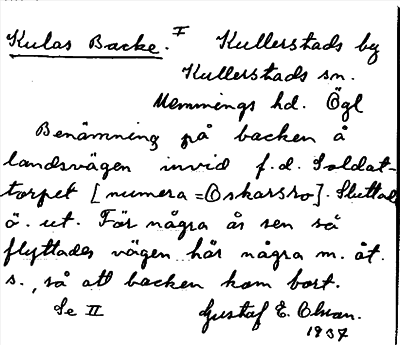 Kulas Backe. I Kullerstads by
Kullerstads sn.
Memmings hd. Ögl
Benämning på backen å
landsvägen invid f.d. Soldat-
torpet [numera = Oskarsro]. Sluttade
ö. ut. För några år sen så
flyttades vägen här några m. åt
s., så att backen kom bort.
Se II Gustaf E. Olsson.
1937